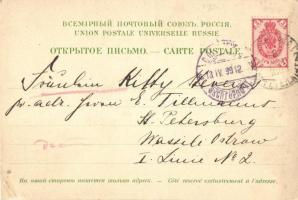 ВСЕМІРНЫЙ ПОЧТОВЫЙ СОЮЗЪ. РОССІЯ.
UNION POSTALE UNIVERSELLE RUSSIE
ОТКРЫТОЕ ПИСЬМО. — CARTE POSTALE.
Fräulein Kitty
pr. adr. Herrn E. Tillmanns
St. Petersburg
Wassili Ostrow
I. Linie No 2.
На этой сторонѣ пишется только адресъ. — Côté réservé exclusivement à l'adresse.